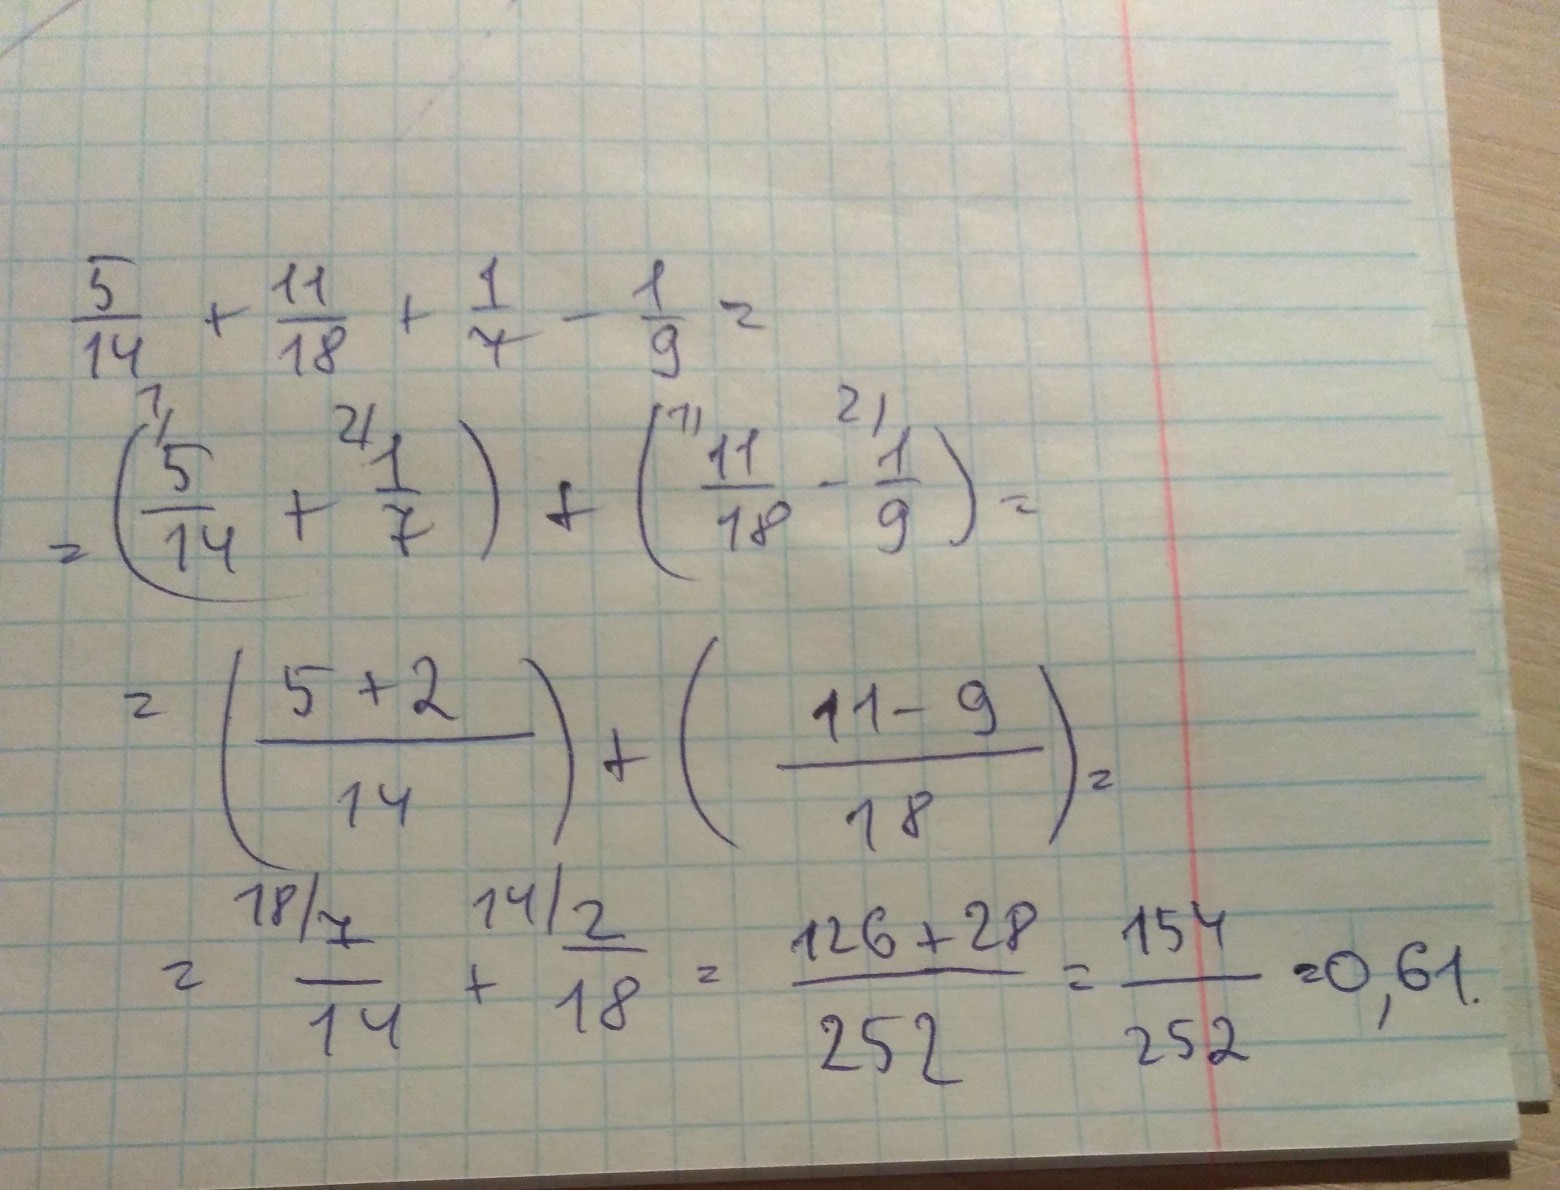 5/14 + 11/18 + 1/7 - 1/9 =
= (1/ 5/14 + 2/ 1/7) + (1/ 11/18 - 2/ 1/9) =
= ((5+2)/14) + ((11-9)/18) =
= 18/ 7/14 + 14/ 2/18 = (126+28)/252 = 154/252 = 0,61.